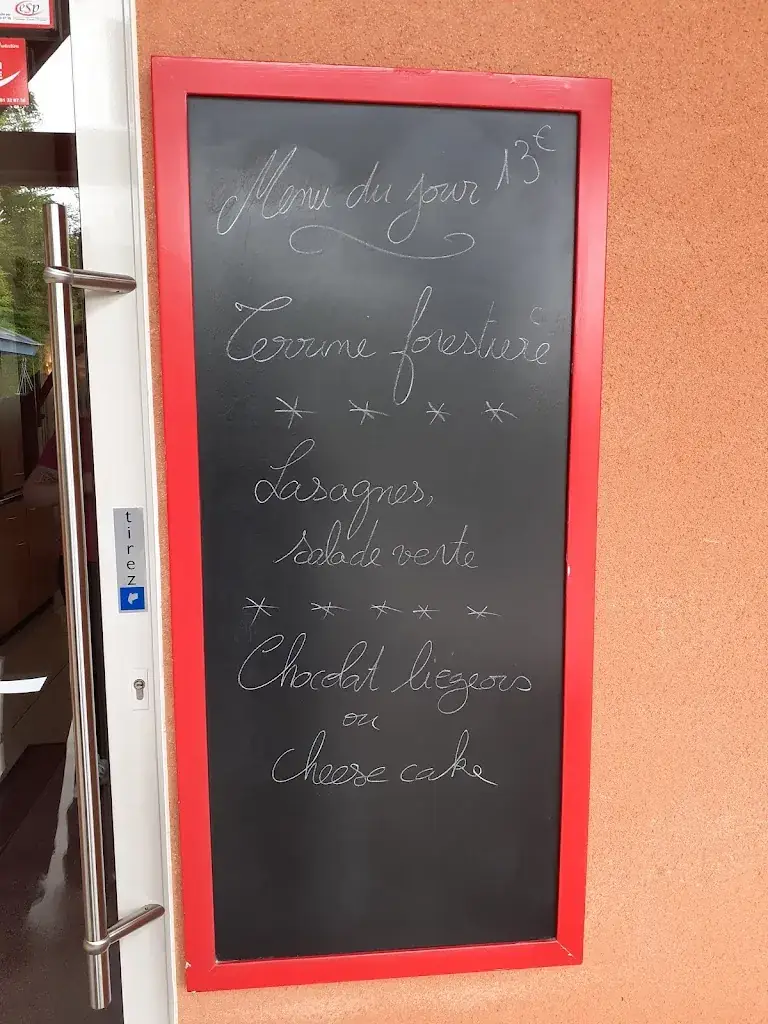 esp
Menu du jour 13€
Terrine forestière
* * * *
Lasagnes,
salade verte
* * * * *
Chocolat liégeois
ou
cheese cake
tirez